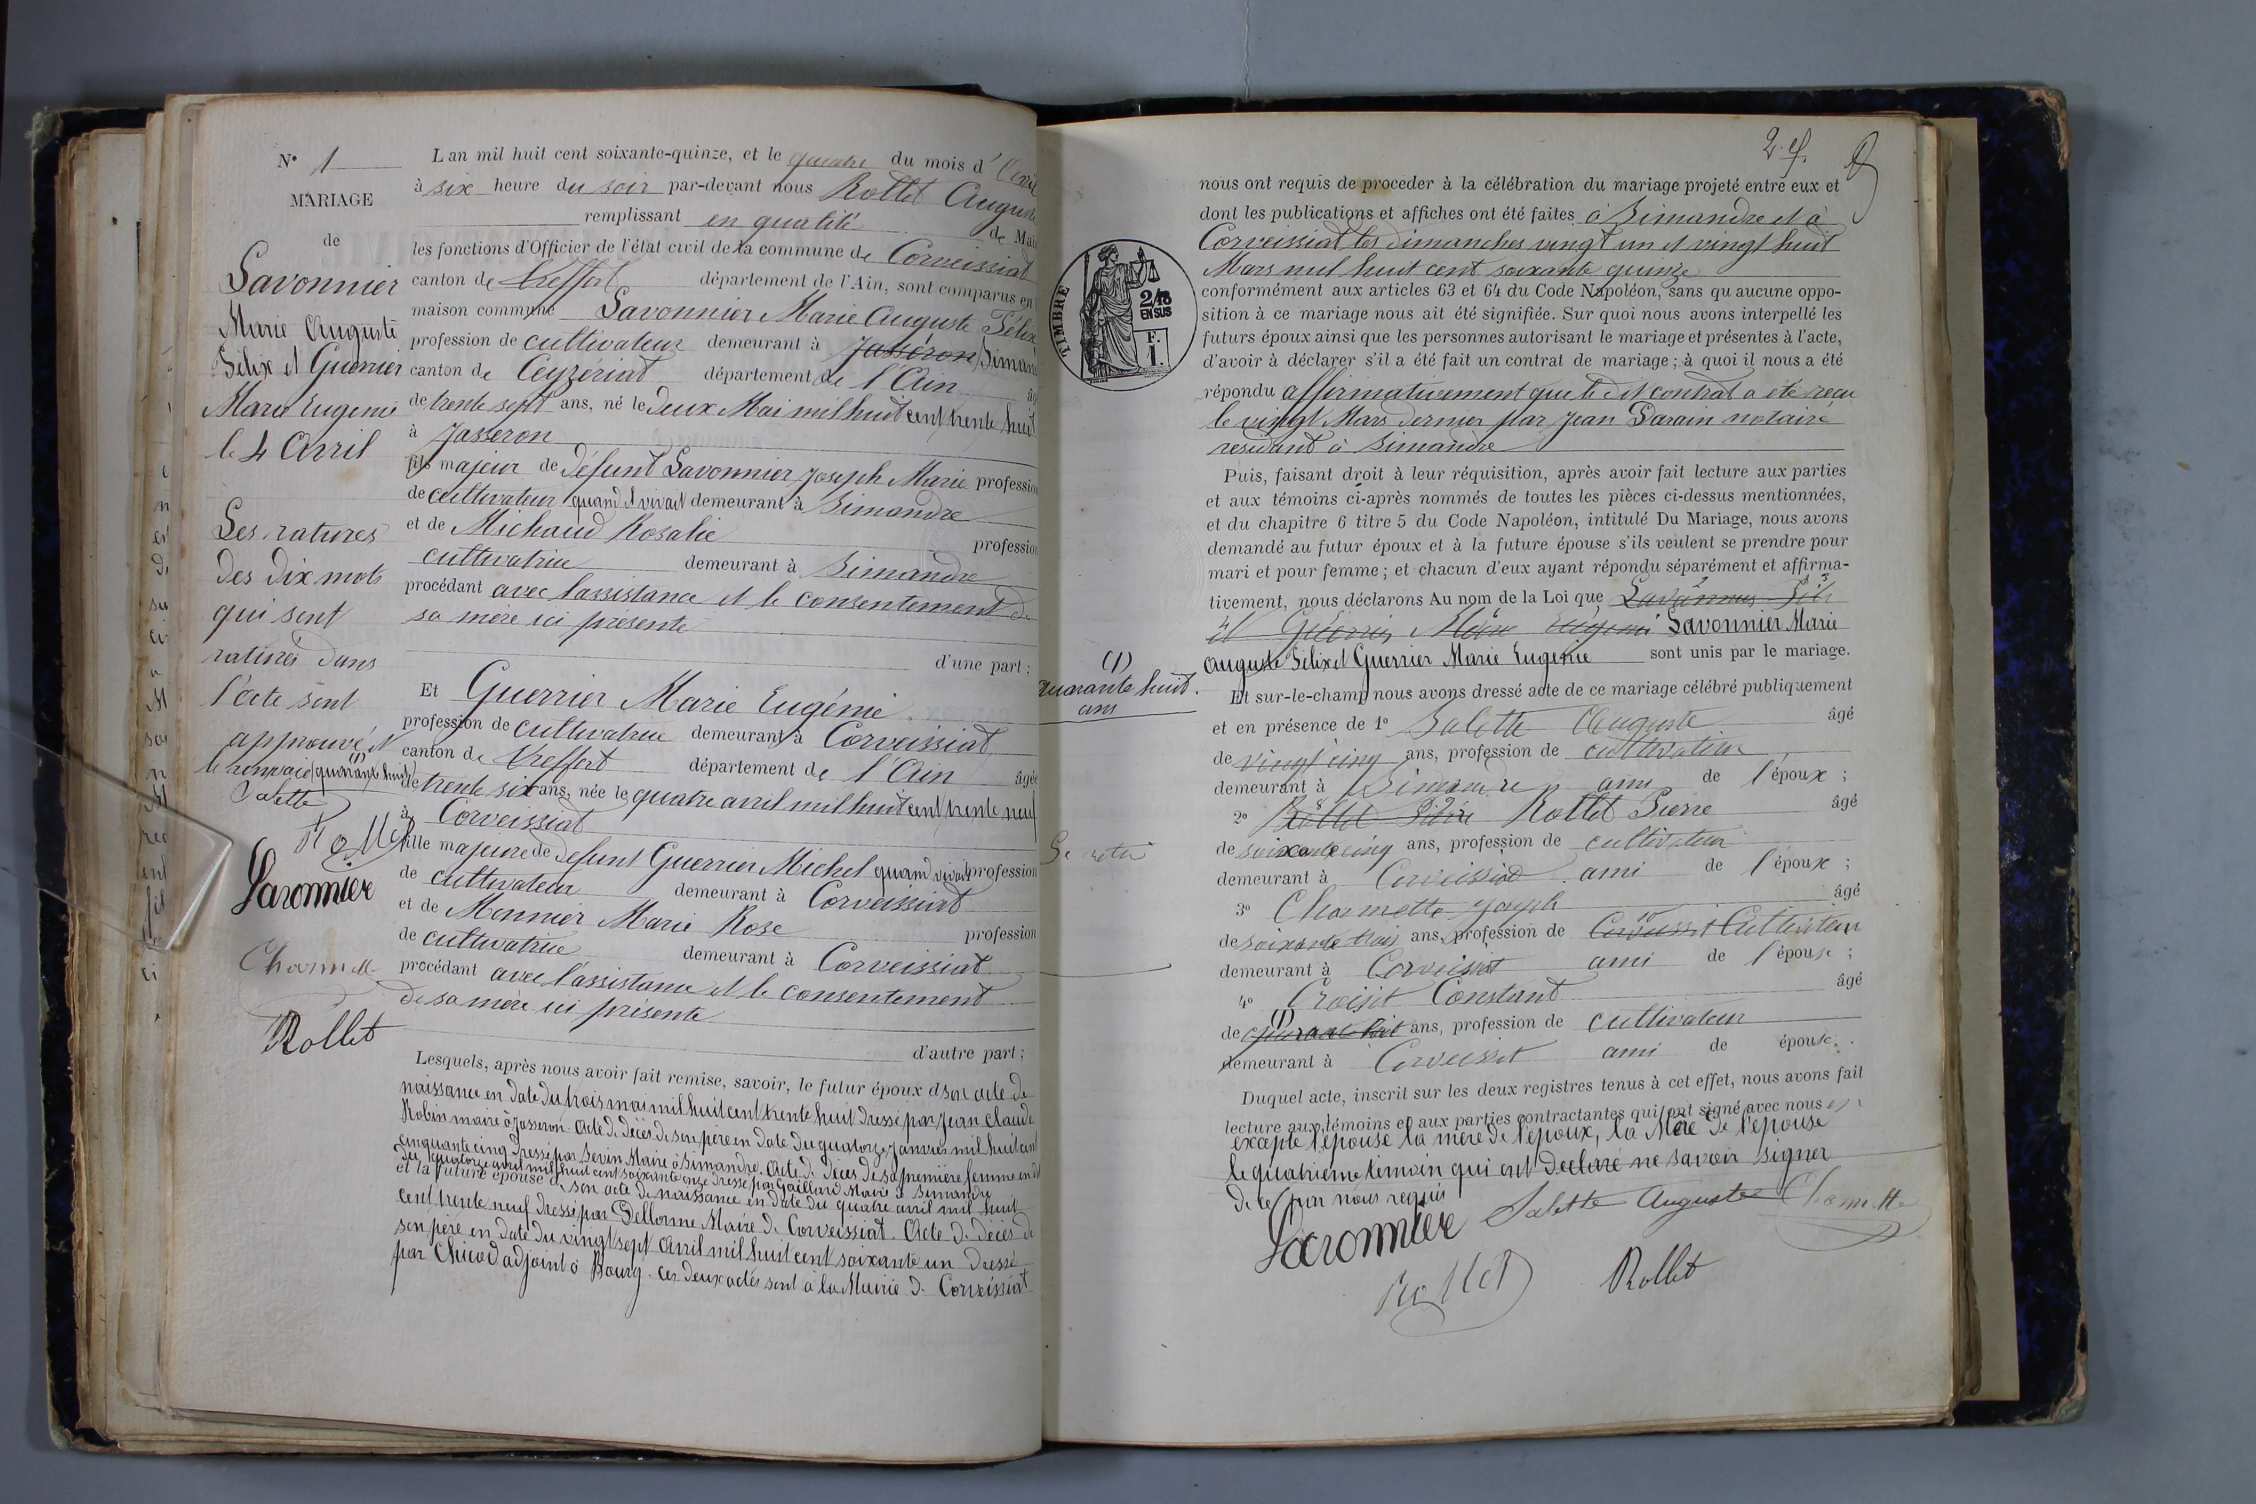 N° 1
MARIAGE
de
Savonnier
Marie Auguste
Félix et Guerrier
Marie Eugenie
le 4 Avril
Les ratures
des dix mots
qui sont
raturés dans
l'acte sont
approuvé et
le renvoie (1) quarante huit
Salette
Rollet
Savonnier
Chamette
Rollet
L'an mil huit cent soixante-quinze, et le quatre du mois d'Avril
à six heure du soir par-devant nous Rollet Auguste
remplissant en qualité de Mai
les fonctions d'Officier de l'état civil de la commune de Corveissiat
canton de Treffort département de l'Ain, sont comparus en
maison commune Savonnier Marie Auguste Félix
profession de cultivateur demeurant à Jasseron Simand
canton de Ceyzeriat département de l'Ain âg
de trente sept ans, né le deux Mai mil huit cent trente huit
à Jasseron
fils majeur de défunt Savonnier Joseph Marie profession
de cultivateur quand il vivait demeurant à Simandre
et de Michaud Rosalie profession
cultivatrice demeurant à Simandre
procédant avec l'assistance et le consentement de
sa mère ici présente
d'une part;
Et Guerrier Marie Eugénie
profession de cultivatrice demeurant à Corveissiat
canton de Treffort département de l'Ain âgée
de trente six ans, née le quatre avril mil huit cent trente neuf
à Corveissiat
fille majeure de défunt Guerrier Michel quand vivait profession
de cultivateur demeurant à Corveissiat
et de Monnier Marie Rose profession
de cultivatrice demeurant à Corveissiat
procédant avec l'assistance et le consentement
de sa mère ici présente
d'autre part;
Lesquels, après nous avoir fait remise, savoir, le futur époux d son acte de
naissance en date du trois mai mil huit cent trente huit dressé par Jean Claude
Robin maire à Jasseron. Acte de décès de son père en date du quatorze Janvier mil huit cent
cinquante cinq dressé par Sevin Maire à Simandre. Acte de décès de sa première femme en d
du quatorze avril mil huit cent soixante onze dressé par Gaillard Maire à Simandre
et la future épouse d son acte de naissance en date du quatre avril mil huit
cent trente neuf dressé par Dellorme Maire de Corveissiat. Acte de décès de
son père en date du vingt sept Avril mil huit cent soixante un dressé
par Chicod adjoint à Bourg. ces deux actes sont à la Mairie de Corveissiat
2. ef.
nous ont requis de procéder à la célébration du mariage projeté entre eux et
dont les publications et affiches ont été faites à Simandre et à
Corveissiat les dimanches vingt un et vingt huit
Mars mil huit cent soixante quinze
conformément aux articles 63 et 64 du Code Napoléon, sans qu'aucune oppo-
sition à ce mariage nous ait été signifiée. Sur quoi nous avons interpellé les
futurs époux ainsi que les personnes autorisant le mariage et présentes à l'acte,
d'avoir à déclarer s'il a été fait un contrat de mariage; à quoi il nous a été
répondu affirmativement que le dit contrat a été reçu
le vingt Mars dernier par Jean Darain notaire
residant à Simandre
TIMBRE
2/10
EN SUS
F.
1.
Puis, faisant droit à leur réquisition, après avoir fait lecture aux parties
et aux témoins ci-après nommés de toutes les pièces ci-dessus mentionnées,
et du chapitre 6 titre 5 du Code Napoléon, intitulé Du Mariage, nous avons
demandé au futur époux et à la future épouse s'ils veulent se prendre pour
mari et pour femme; et chacun d'eux ayant répondu séparément et affirma-
tivement, nous déclarons Au nom de la Loi que
et Guerrier Marie Eugenie Savonnier Marie
Auguste Félix et Guerrier Marie Eugenie sont unis par le mariage.
(1)
quarante huit.
ans
Et sur-le-champ nous avons dressé acte de ce mariage célébré publiquement
et en présence de 1° Salette Auguste âgé
de vingt cinq ans, profession de cultivateur
demeurant à Simandre ami de l'époux;
2° Rollet Pierre Rollet Pierre âgé
de soixante cinq ans, profession de cultivateur
demeurant à Corveissiat ami de l'époux;
3° Chamette Joseph âgé
de soixante trois ans, profession de Cultivateur
demeurant à Corveissiat ami de l'épouse;
4° Croisit Constant âgé
de (1) quarante huit ans, profession de cultivateur
demeurant à Corveissiat ami de épouse.
Duquel acte, inscrit sur les deux registres tenus à cet effet, nous avons fait
lecture aux témoins et aux parties contractantes qui ont signé avec nous
excepté l'épouse la mère de l'époux, la Mère de l'épouse
le quatrieme témoin qui ont declaré ne savoir signer
de ce par nous requis
Savonnier Salette Auguste Chamette
Rollet Rollet